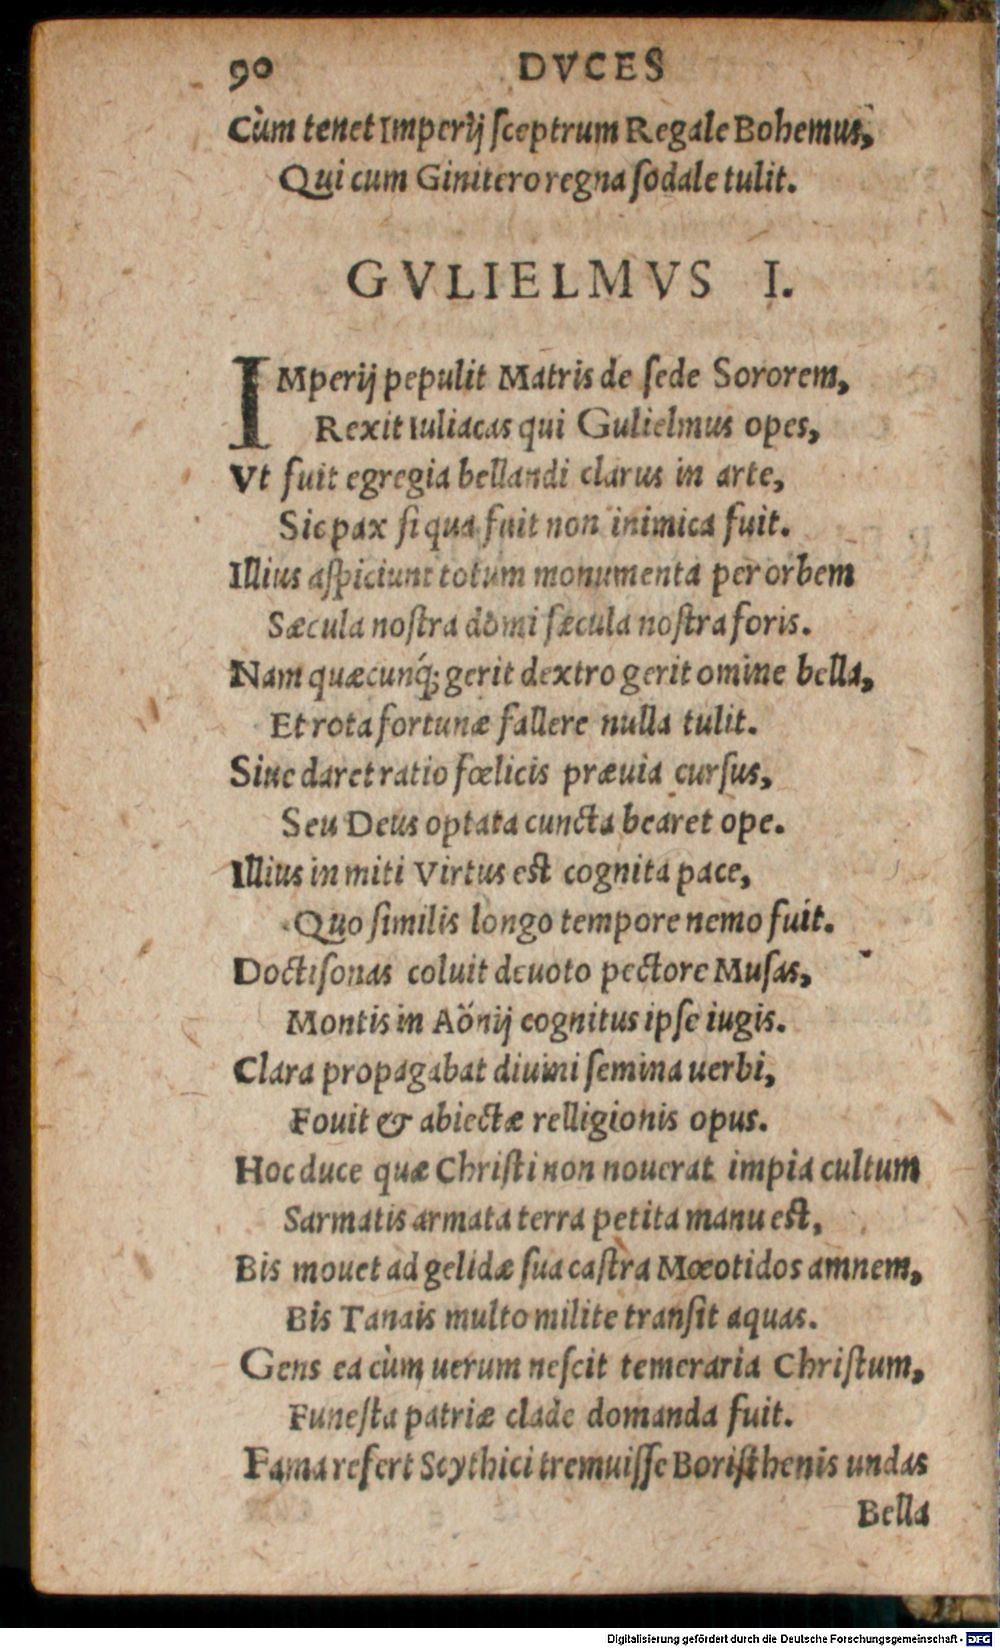 90 DVCES
Cùm tenet Imperij sceptrum Regale Bohemus,
Qui cum Ginitero regna sodale tulit.
GVLIELMVS I.
IMperij pepulit Matris de sede Sororem,
Rexit Iuliacas qui Gulielmus opes,
Vt fuit egregia bellandi clarus in arte,
Sic pax si qua fuit non inimica fuit.
Illius aspiciunt totum monumenta per orbem
Sæcula nostra domi sæcula nostra foris.
Nam quæcunq́; gerit dextro gerit omine bella,
Et rota fortunæ fallere nulla tulit.
Siue daret ratio fœlicis præuia cursus,
Seu Deus optata cuncta bearet ope.
Illius in miti Virtus est cognita pace,
Quo similis longo tempore nemo fuit.
Doctisonas coluit deuoto pectore Musas,
Montis in Aönij cognitus ipse iugis.
Clara propagabat diuini semina uerbi,
Fouit & abiectæ relligionis opus.
Hoc duce quæ Christi non nouerat impia cultum
Sarmatis armata terra petita manu est,
Bis mouet ad gelidæ sua castra Mœotidos amnem,
Bis Tanais multo milite transit aquas.
Gens ea cùm uerum nescit temeraria Christum,
Funesta patriæ clade domanda fuit.
Fama refert Scythici tremuisse Boristhenis undas
Bella
Digitalisierung gefördert durch die Deutsche Forschungsgemeinschaft - DFG